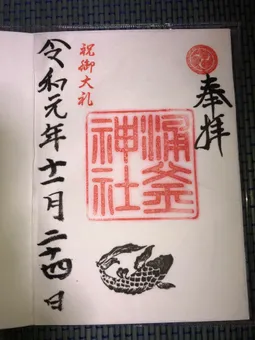 奉拝
涌釜
神社
祝御大礼
令和元年十一月二十四日